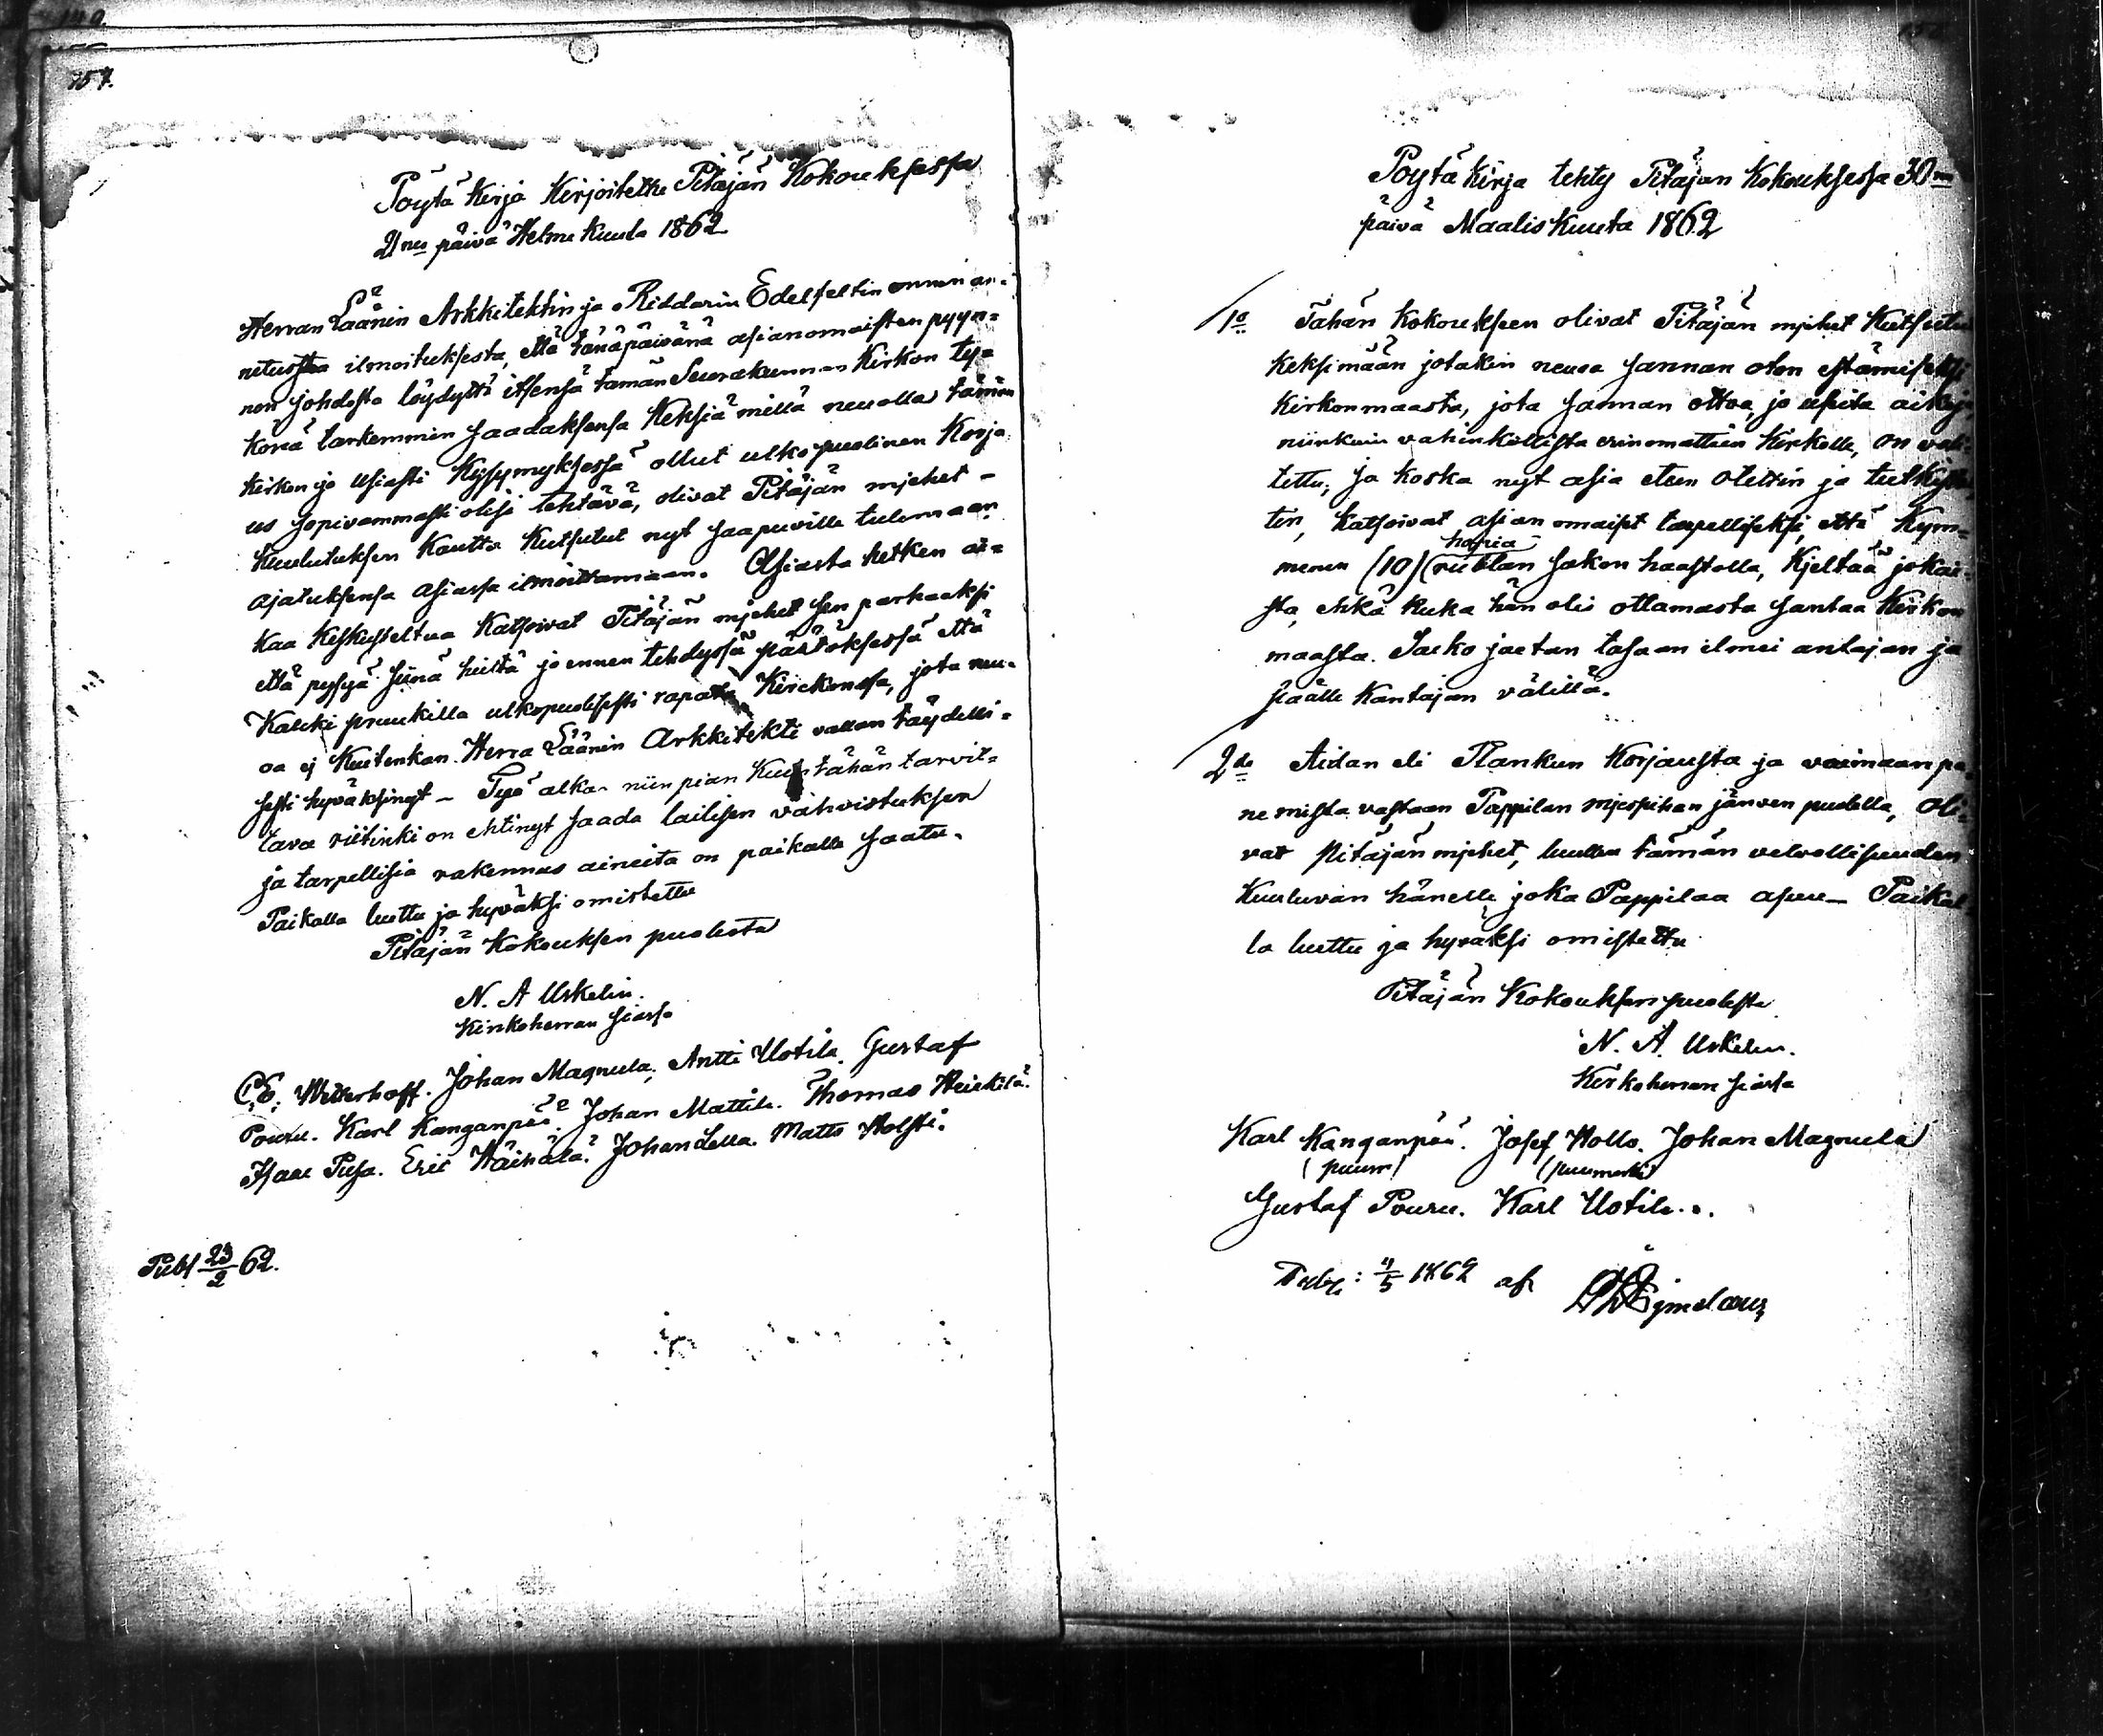 157.
Pöytä Kirja Kirjoitettu Pitäjän Kokouksessa
21nes päivä Helme Kuuta 1862
Herran Läänin Arkkitehtin ja Riddarin Edelfeltin ennen an-
netusta ilmoituksesta, että tänäpäivänä asianomaisten pyyn-
nön johdosta löydyttä itsensä tämän Seurakunnan Kirkon ty-
könä tarkemmin saadaksensa Keksiä millä neuolla tämän
kirkon jo usiasti Kysymyksessä ollut ulkopuolinen Korja-
us sopivammasti olisi tehtävä, olivat Pitäjän mjehet -
Kuulutuksen Kautta Kutsutut nyt saapuville tulemaan
ajatuksensa asiassa ilmoittamaan. Asiasta hetken ai-
kaa keskusteltua Katsoivat Pitäjän mjehet sen parhaaksi
että pysyä siinä heiltä jo ennen tehdyssä päätöksessä että
Kalcki pruukilla ulkopuolisesti rapata Kirckonsa, jota neu-
oa ej Kuitenkan Herra Läänin Arkkitekti vallan täydelli-
sesti hyväksinyt - Työ alkaa niin pian Kuin tähän tarvit-
tava riitinki on ehtinyt saada lailisen vahvistuksen
ja tarpellisia rakennus aineita on paikalle saatu.
Paikalla luettu ja hyväksi omistettu
Pitäjän Kokouksen puolesta
N. A Uskelin.
Kirkoherran siassa
C. E. Wetterhoff. Johan Magnula, Antti Uotila. Gustaf
Pouru. Karl Kanganpää. Johan Mattila. Thomas Heickilä.
Isaac Pusa. Eric Häihälä. Johan Lella. Matts Holsti.
Publ 23/2 62.
Pöytä Kirja tehty Pitäjän Kokouksessa 30 en
päivä Maalis Kuuta 1862
1o Tähän Kokoukseen olivat Pitäjän mjehet Kutsutu
Keksimään jotakin neuoa sannan oton estämiseksi
Kirkonmaasta, jota sannan ottoa, jo usita aikoja
niinkuin vahinkollista erinomattain Kirkolle, on vali-
tettu; ja koska nyt asia eteen otettin ja tutkist
tin, katsoivat asian omaiset tarpelliseksi, että Kym-
menen (10) hopia rublan sakon haastolla, Kjeltää jokai-
sta, ehkä kuka hän olis ottamasta santaa Kirkon
maasta. Sacko jaetan tasaan ilmei antajan ja
päälle Kantajan välillä.
2do Aidan eli Plankun Korjausta ja voimaan pa-
nemista vastaan Pappilan mjespihan järven puolella, Oli-
vat Pitäjän mjehet, luullen tämän velvollisuuden
Kuuluvan hänelle joka Pappilaa asuu - Paikal
la luettu ja hyväksi omistettu
Pitäjän Kokouksen puolesta
N. A. Uskelin.
Kirkoherran siassa
Karl Kanganpää. Josef Hollo. Johan Magnula
(puum) (puumerki)
Gustaf Pouru. Karl Uotila..
4/5 1862 af